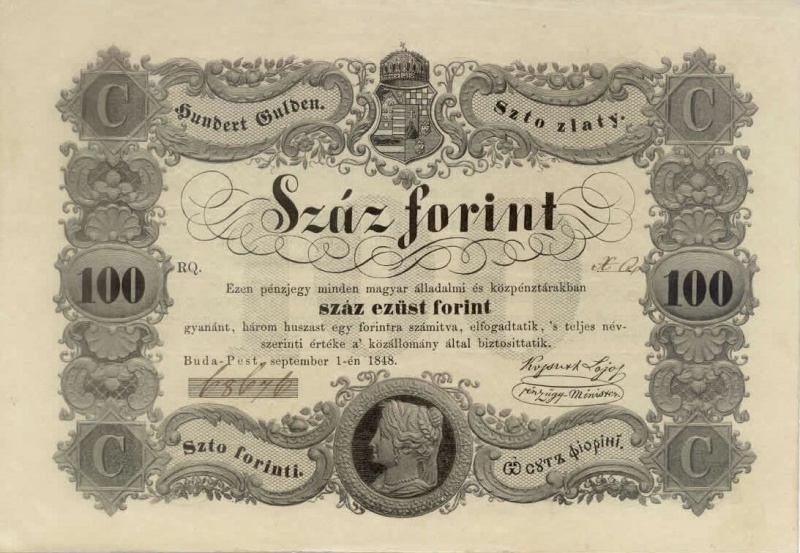 C
Hundert Gulden.
Szto zlaty.
C
Száz forint
100
RQ.
100
Ezen pénzjegy minden magyar álladalmi és közpénztárakban
száz ezüst forint
gyanánt, három huszast egy forintra számitva, elfogadtatik, 's teljes név-
szerinti értéke a' közállomány által biztosittatik.
Buda-Pest, september 1-én 1848.
Kossuth Lajos
pénzügy Minister.
C
Szto forinti.
Ѡ сутъ фіорінї.
C